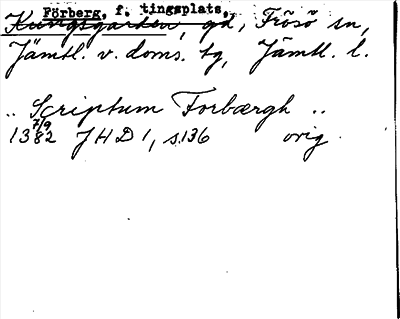 Förberg, f. tingsplats,
Kungsgården, gd, Frösö sn,
Jämtl. v. doms. tg, Jämtl. l.
.. Scriptum Forbærgh ..
7/9
1382 JHD 1, s.136 orig.